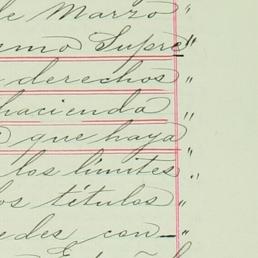 de Marzo "
smo Supre "
derechos "
hacienda "
que haya "
los límites "
os títulos "
edes con- "